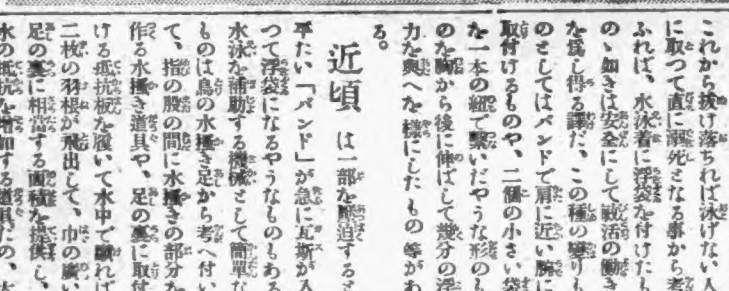 これから抜け落ちれば泳げない人
に取つて直に溺死となる事から考
ふれば、水泳着に浮袋を付けたも
のゝ如きは安全にして敏活の働き
を為し得る譯だ、この種の變りも
のとしてはバンドで肩に近い腕に
取付けるものや、二個の小さい袋
を一本の紐で繋いだやうな形のも
のを胸から後に伸ばして幾分の浮
力を與へを樣にしたもの等があ
る。
近頃は一部を壓迫すると
平たい「バンド」が急に瓦斯が入
つて浮袋になるやうなものもある
水泳を補助する機械として簡單な
ものは鳥の水搔き足から考へ付い
て、指の股の間に水搔きの部分を
作る水搔き道具や、足の裏に取付
ける抵抗板を履いて水中で蹴れば
二枚の羽根が飛出して、巾の廣い
足の裏に相當する面積を提供し、
水の抵抗を增加する道具だの、